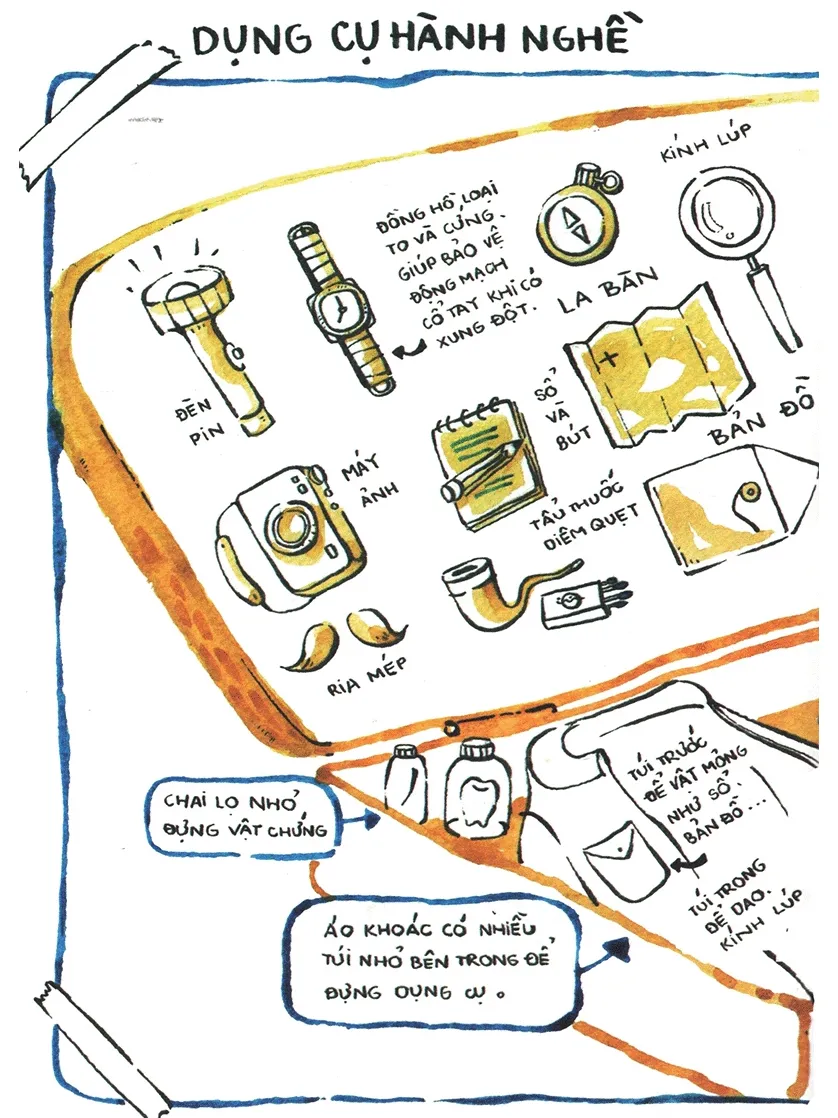 DỤNG CỤ HÀNH NGHỀ
KÍNH LÚP
ĐỒNG HỒ LOẠI
TO VÀ CỨNG.
GIÚP BẢO VỆ
ĐỘNG MẠCH
CỔ TAY KHI CÓ
XUNG ĐỘT.
LA BÀN
ĐÈN
PIN
SỔ
VÀ
BÚT
BẢN ĐỒ
MÁY
ẢNH
TẨU THUỐC
DIÊM QUẸT
RIA MÉP
TÚI TRƯỚC
ĐỂ VẬT MỎNG
NHƯ SỔ.
BẢN ĐỒ...
CHAI LỌ NHỎ
ĐỰNG VẬT CHỨNG
TÚI TRONG
ĐỂ DAO.
KÍNH LÚP
ÁO KHOÁC CÓ NHIỀU
TÚI NHỎ BÊN TRONG ĐỂ
ĐỰNG DỤNG CỤ.